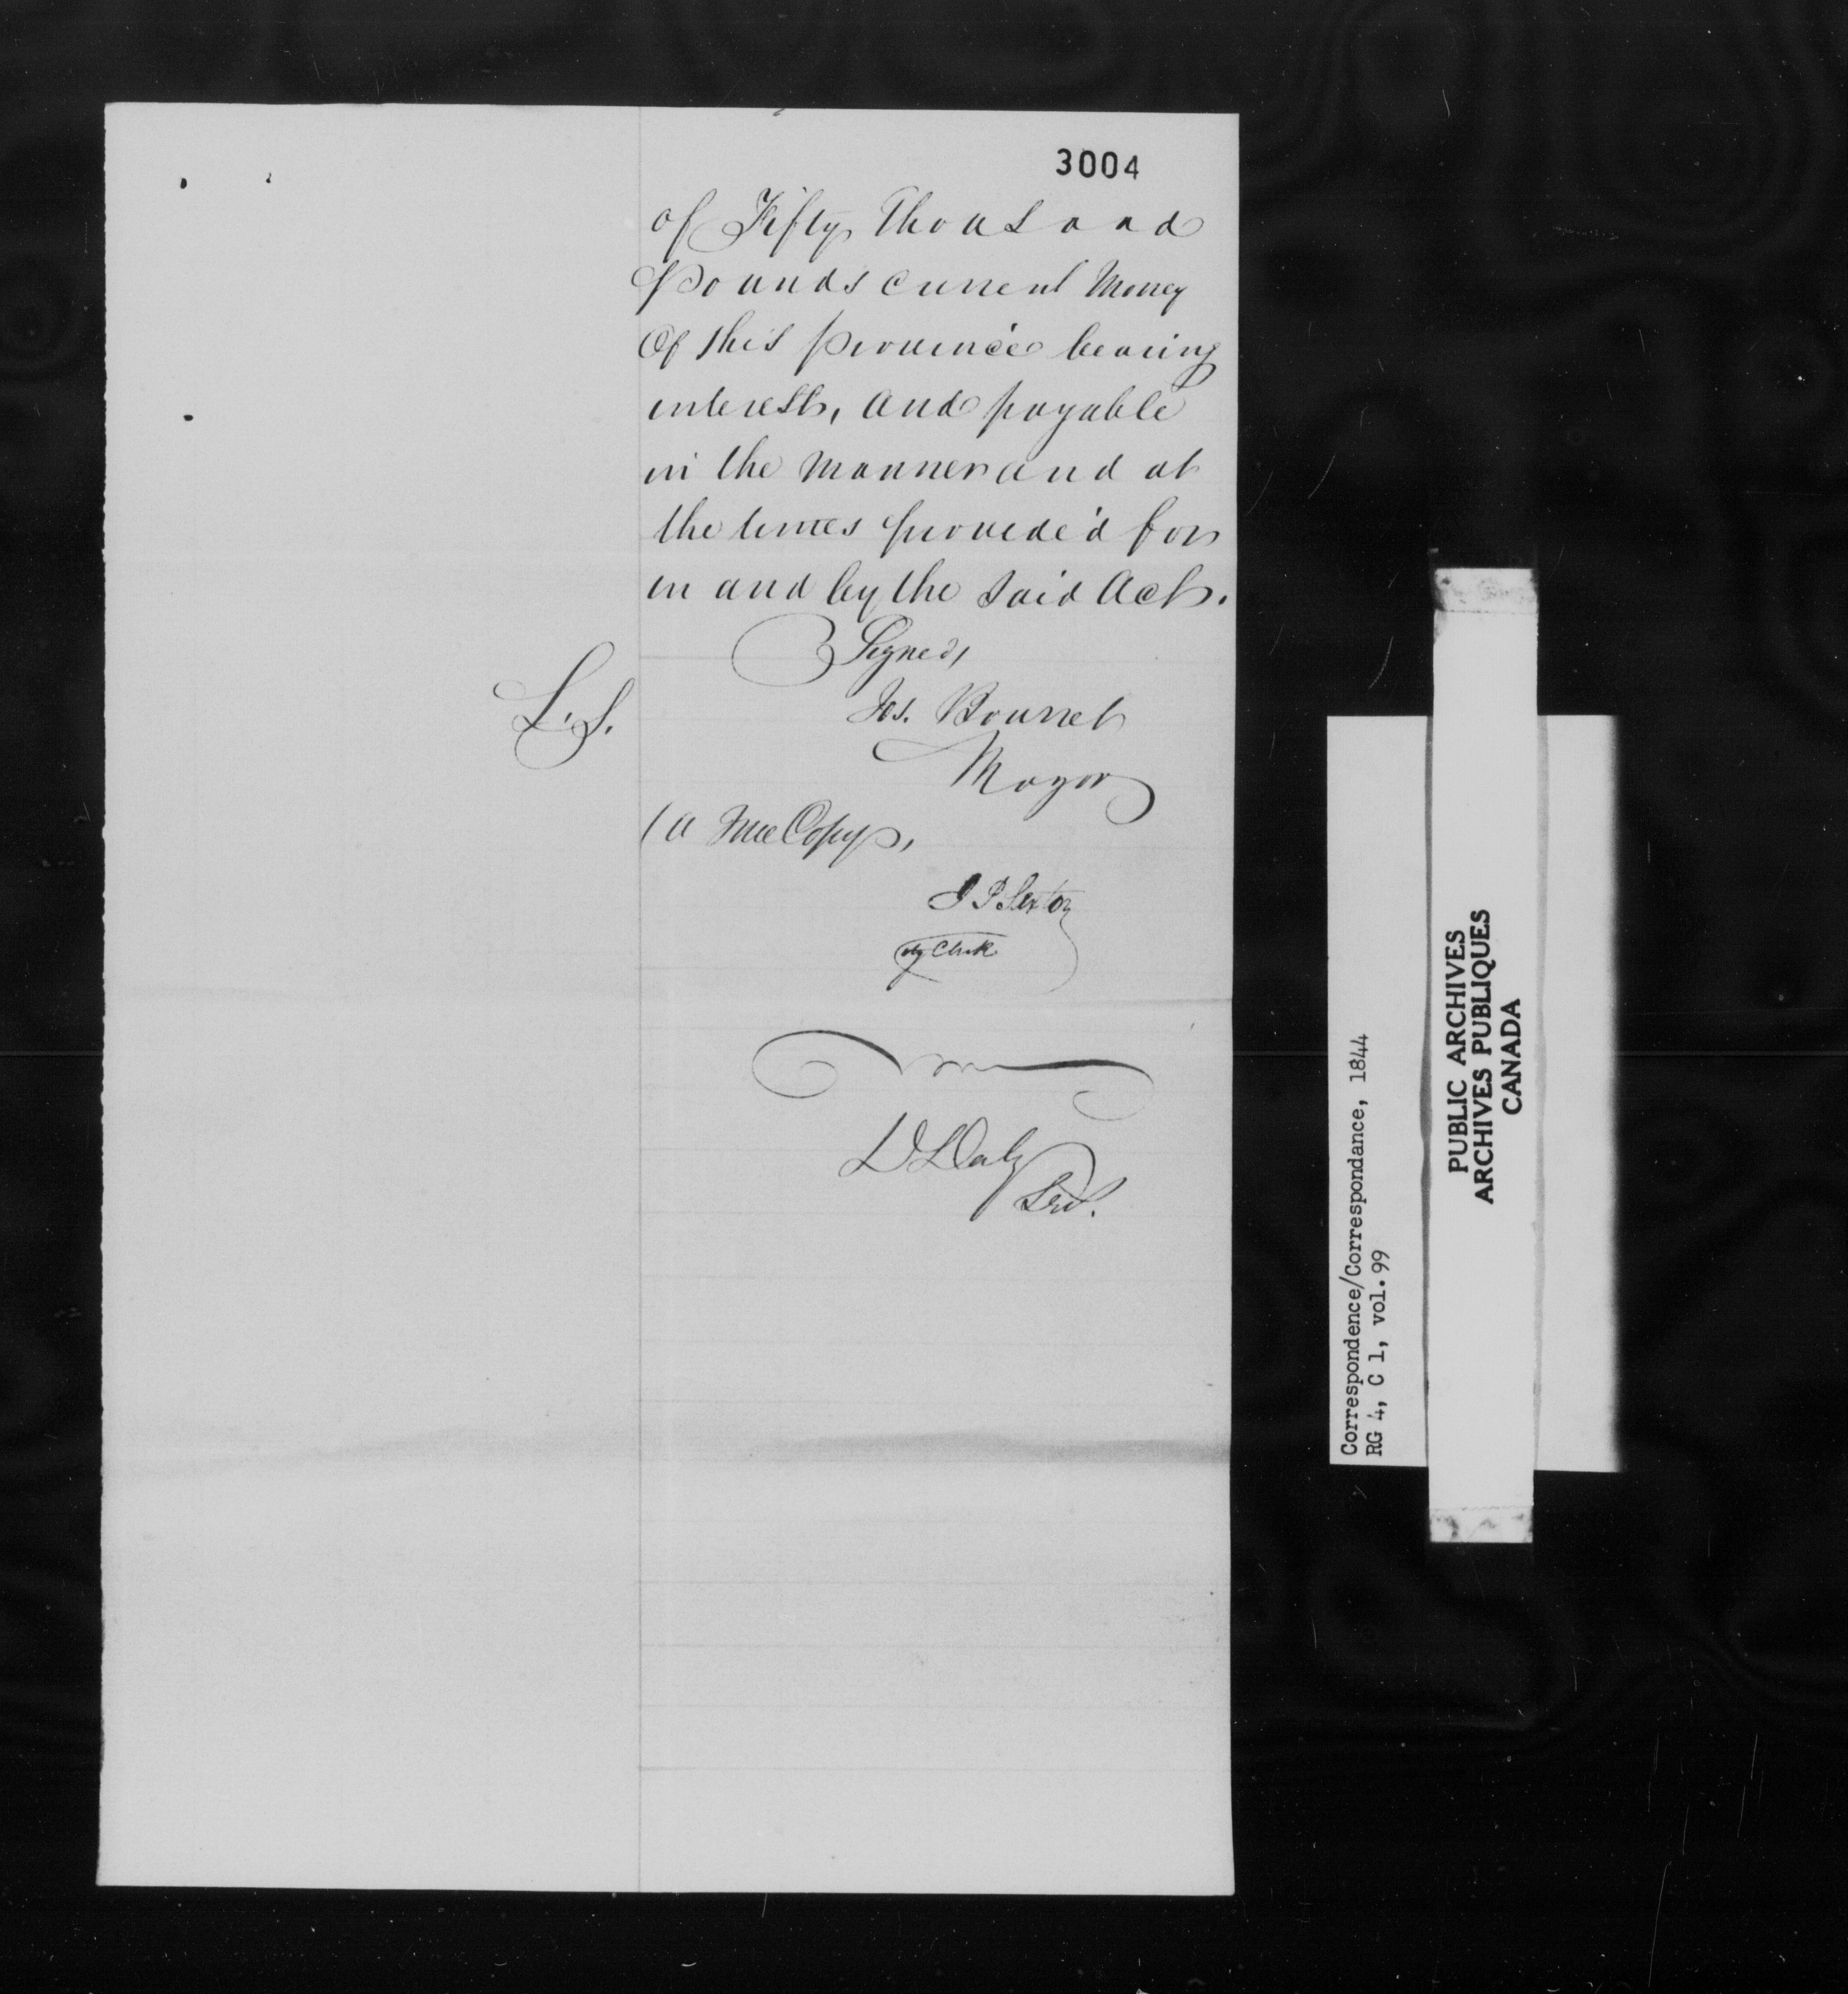 3004
of Fifty Thousand
Pounds current Money
Of this province bearing
interest, and payable
in the manner and at
the times provided for
in and by the said Act.
Signed,
L.S.
Jos. Bourret
Mayor
(a true Copy,
J P Sexton
City Clerk
D Daly
Secy.
Correspondence/Correspondance, 1844
RG 4, C 1, vol.99
PUBLIC ARCHIVES
ARCHIVES PUBLIQUES
CANADA